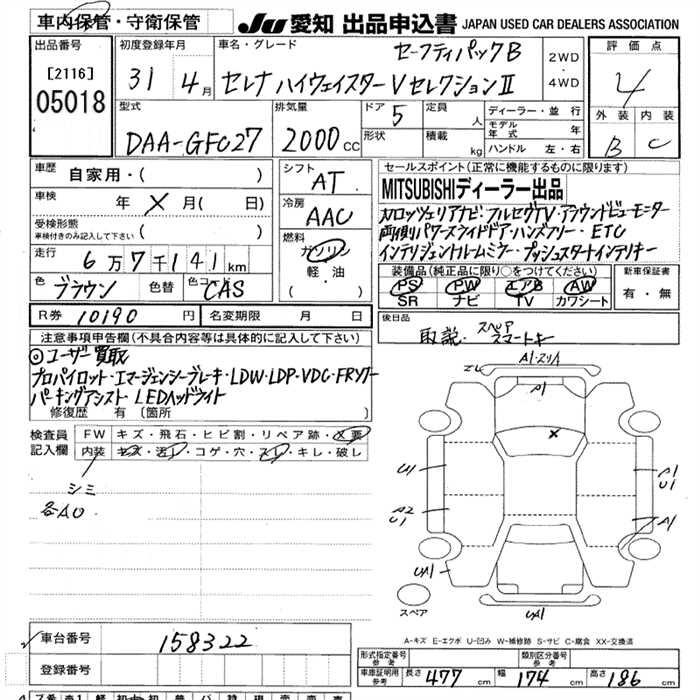 車内保管・守衛保管
JU 愛知 出品申込書 JAPAN USED CAR DEALERS ASSOCIATION
出品番号
[2116]
05018
初度登録年月
31 年 4月
車名・グレード
セーフティパックB
セレナ ハイウェイスターVセレクションII
2WD
・
4WD
評価点
4
外装 内装
B C
型式
DAA-GFC27
排気量
2000cc
ドア 5
形状
定員 人
積載 kg
ディーラー・並行
モデル年式 年
ハンドル 左・右
車歴
自家用・( )
車検 年 X 月( 日)
受検形態
車検付きのみ記入して下さい ( )
走行 6万7千141km
色 ブラウン 色替 色コード CAS
R券 10190円 名変期限 月 日
シフト
AT
冷房
AAC
燃料
ガソリン
軽・油
( )
セールスポイント(正常に機能するものに限ります)
MITSUBISHIディーラー出品
カロッツェリアナビ・フルセグTV・アラウンドビューモニター
両側パワースライドドア・ハンズフリー・ETC
インテリジェントルームミラー・プッシュスタートインテリキー
装備品(純正品に限り○をつけてください)
PS PW エアB AW
SR ナビ TV カワシート
新車保証書
有・無
後日品
取説・スペアスマートキー
注意事項申告欄(不具合内容等は具体的に記入して下さい)
◎ユーザー買取
プロパイロット・エマージェンシーブレーキ・LDW・LDP・VDC・FRソナー
パーキングアシスト・LEDヘッドライト
修復歴 有 〔箇所 〕
検査員記入欄
FW キズ・飛石・ヒビ割・リペア跡・X要
内装 キズ・汚レ・コゲ・穴・スレ・キレ・破レ
シミ
各A0
A1.スリA
A1
X
U1
A2
U1
A1
U1
A1
UA1
UA1
スペア
A-キズ E-エクボ U-凹み W-補修跡 S-サビ C-腐食 XX-交換済
車台番号 158322
登録番号
形式指定番号 参考
類別区分番号 参考
車庫証明用 参考 長さ 477cm 幅 174cm 高さ 186cm